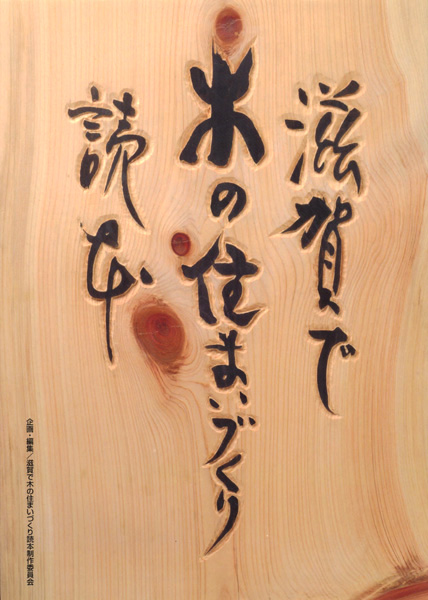 滋賀で
木の住まいづくり
読本
企画・編集／滋賀で木の住まいづくり読本制作委員会